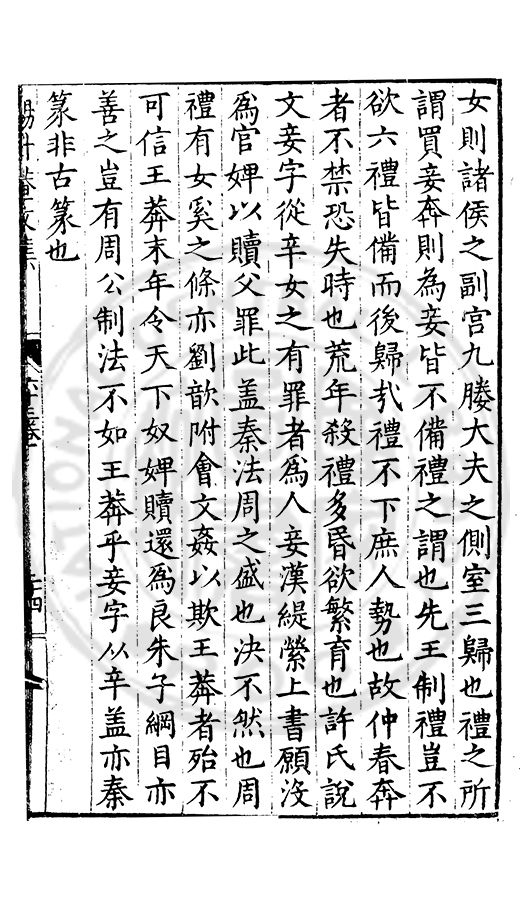 女則諸侯之副宫九媵大夫之側室三歸也禮之所
謂買妾奔則為妾皆不備禮之謂也先王制禮豈不
欲六禮皆備而後歸㢤禮不下庶人勢也故仲春奔
者不禁恐失時也荒年殺禮多昏欲繁育也許氏說
文妾字從辛女之有罪者為人妾漢緹縈上書願没
爲官婢以贖父罪此盖秦法周之盛也決不然也周
禮有女奚之條亦劉歆附會文姦以欺王莽者殆不
可信王莽末年令天下奴婢贖還爲良朱子綱目亦
善之豈有周公制法不如王莽乎妾字从辛盖亦秦
篆非古篆也